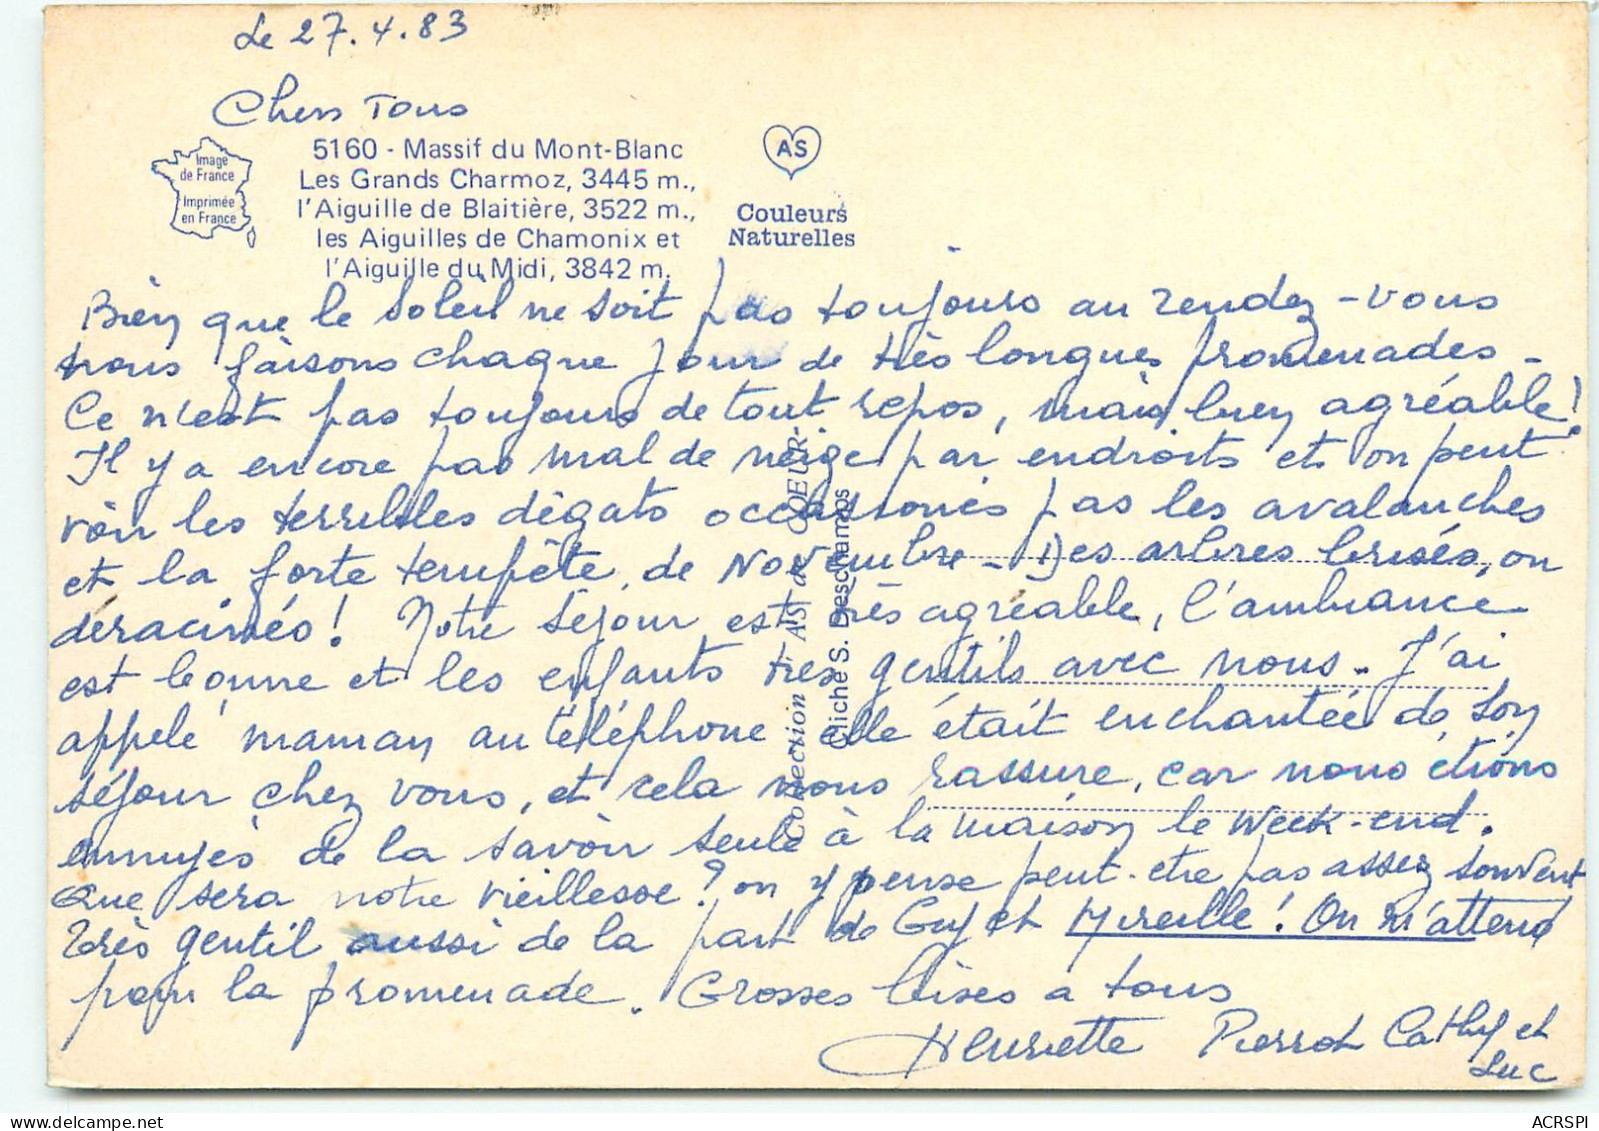 Le 27.4.83
Chers Tous
5160 - Massif du Mont-Blanc
Les Grands Charmoz, 3445 m.,
l'Aiguille de Blaitière, 3522 m.,
les Aiguilles de Chamonix et
l'Aiguille du Midi, 3842 m.
Image
de France
Imprimée
en France
AS
Couleurs
Naturelles
Bien que le soleil ne soit pas toujours au rendez-vous
nous faisons chaque jour de très longues promenades -
Ce n'est pas toujours de tout repos, mais bien agréable!
Il y a encore pas mal de neige par endroits et on peut
voir les terribles dégats occassionés pas les avalanches
et la forte tempête, de Novembre - Des arbres brisés, ou
déracinés! Notre séjour est très agréable, l'ambiance
est bonne et les enfants très gentils avec nous. J'ai
appelé maman au téléphone elle était enchantée de son
séjour chez vous, et cela nous rassure, car nous étions
ennuyés de la savoir seule à la maison le Week-end.
Que sera notre vieillesse? on y pense peut-etre pas assez souvent
Très gentil aussi de la part de Guy et Mireille! On m'attend
pour la promenade. Grosses bises a tous
Henriette Pierrot Cathy et
Luc
Collection AS de COEUR
Cliché S. Deschamps
ACRSPI